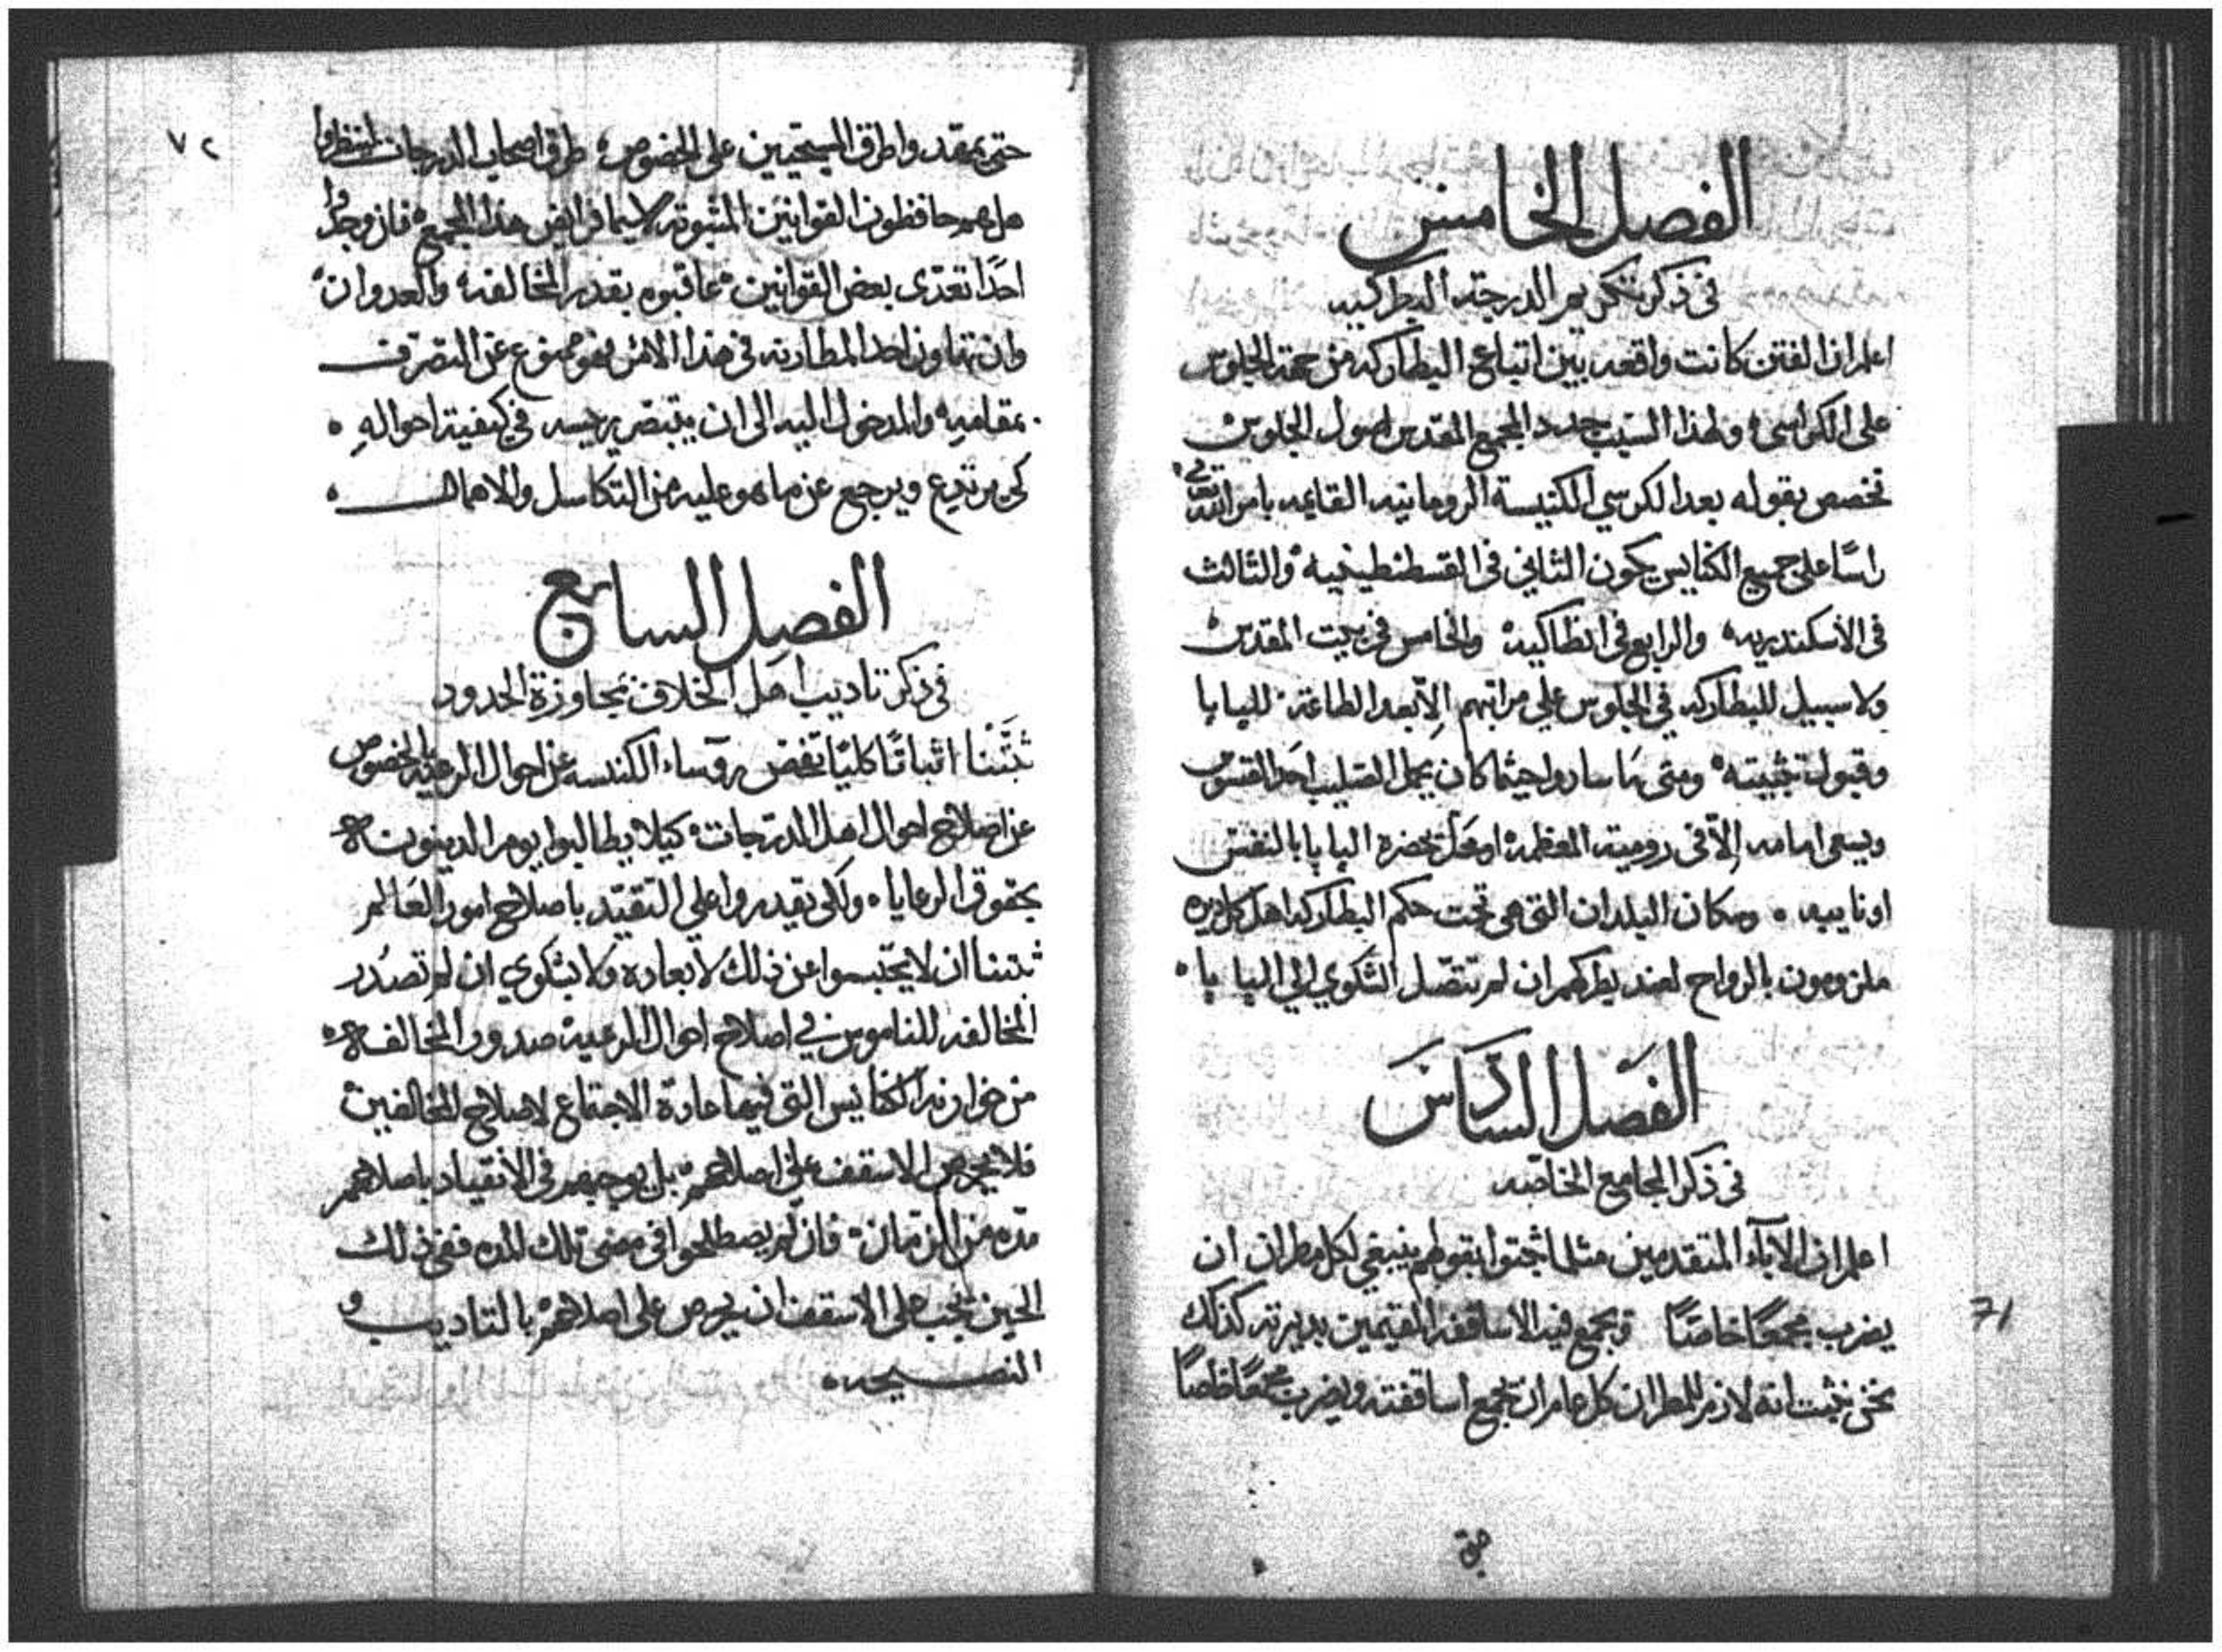 الفصل الخامس
في ذكر تكريم الدرجة البطركيه
اعلم ان الفتن كانت واقعه بين اتباع البطاركه من جهة الجلوس
على الكراسي ولهذا السبب جدد المجمع المقدس اصول الجلوس
تخصص بقوله بعد الكرسي الكنيسة الرومانيه القايمه بامر الله
راسًا على جميع الكنايس يكون الثاني في القسطنطينيه والثالث
في الاسكندريه والرابع في انطاكيه والخامس في بيت المقدس
ولا سبيل للبطاركه في الجلوس على مراتبهم الاّ بعد الطاعة للبابا
وقبول تثبيته ومتى ما ساروا حيثما كان يحمل الصليب احد القسوس
ويسعى امامه الاّ في رومية المعظمه او محل بحضرة البابا بالنفس
او نايبه وسكان البلدان التي هي تحت حكم البطاركه اهل كل ديره
ملزومون بالرواح لعند بطركهم ان لم تتصل الشكوي الي البابا
الفصل السادس
في ذكر المجامع الخاصه
اعلم ان الآباء المتقدمين مثلما اثبتوا بقولهم ينبغي لكل مطران ان
يضرب مجمعًا خاصًا ويجمع فيه الاساقفه المقيمين بديرته كذلك
نحن نثبت انه لازم للمطران كل عام ان يجمع اساقفته ويضرب مجمعًا خاصًا
71
٧٢
حتى يفقدوا طرق المسيحيين على الخصوص طرق اصحاب الدرجات لينظروا
هل هم حافظون القوانين المثبوته لا سيما فرايض هذا المجمع فان وجدوا
احدًا تعدّى بعض القوانين عاقبوه بقدر المخالفه والعدوان
وان تهاون احد المطارنه في هذا الامر فهو ممنوع عن التصرف
بمقامه والدخول اليه الى ان يتبصر رييسه في كيفية احواله
كي يرتدع ويرجع عن ما هو عليه من التكاسل والاهمال
الفصل السابع
في ذكر تاديب اهل الخلاف بمجاوزة الحدود
ثبّتنا اثباتًا كليًا تفحص روّساء الكنيسه عن احوال الرعيه بالخصوص
عن اصلاح احوال اهل الدرجات كيلا يطالبوا يوم الدينونه
بحقوق الرعايا ولكي يقدروا على التقيّد باصلاح امور العالم
ثبتنا ان لا يحتبسوا عن ذلك لا بعاده ولا بشكوي ان لم تصدر
المخالفه للناموس في اصلاح احوال الرعيه صدور المخالفه
من خوارنة الكنايس التي فيها عادة الاجتماع لاصلاح المخالفين
فلا يحرص الاسقف على اصلاحهم بل يوجبهم في الانقياد باصلاحهم
مدّه من الزمان فان لم يصطلحوا في مضى تلك المده ففي ذلك
الحين يجب على الاسقف ان يحرص على اصلاحهم بالتاديب و
النصيحه